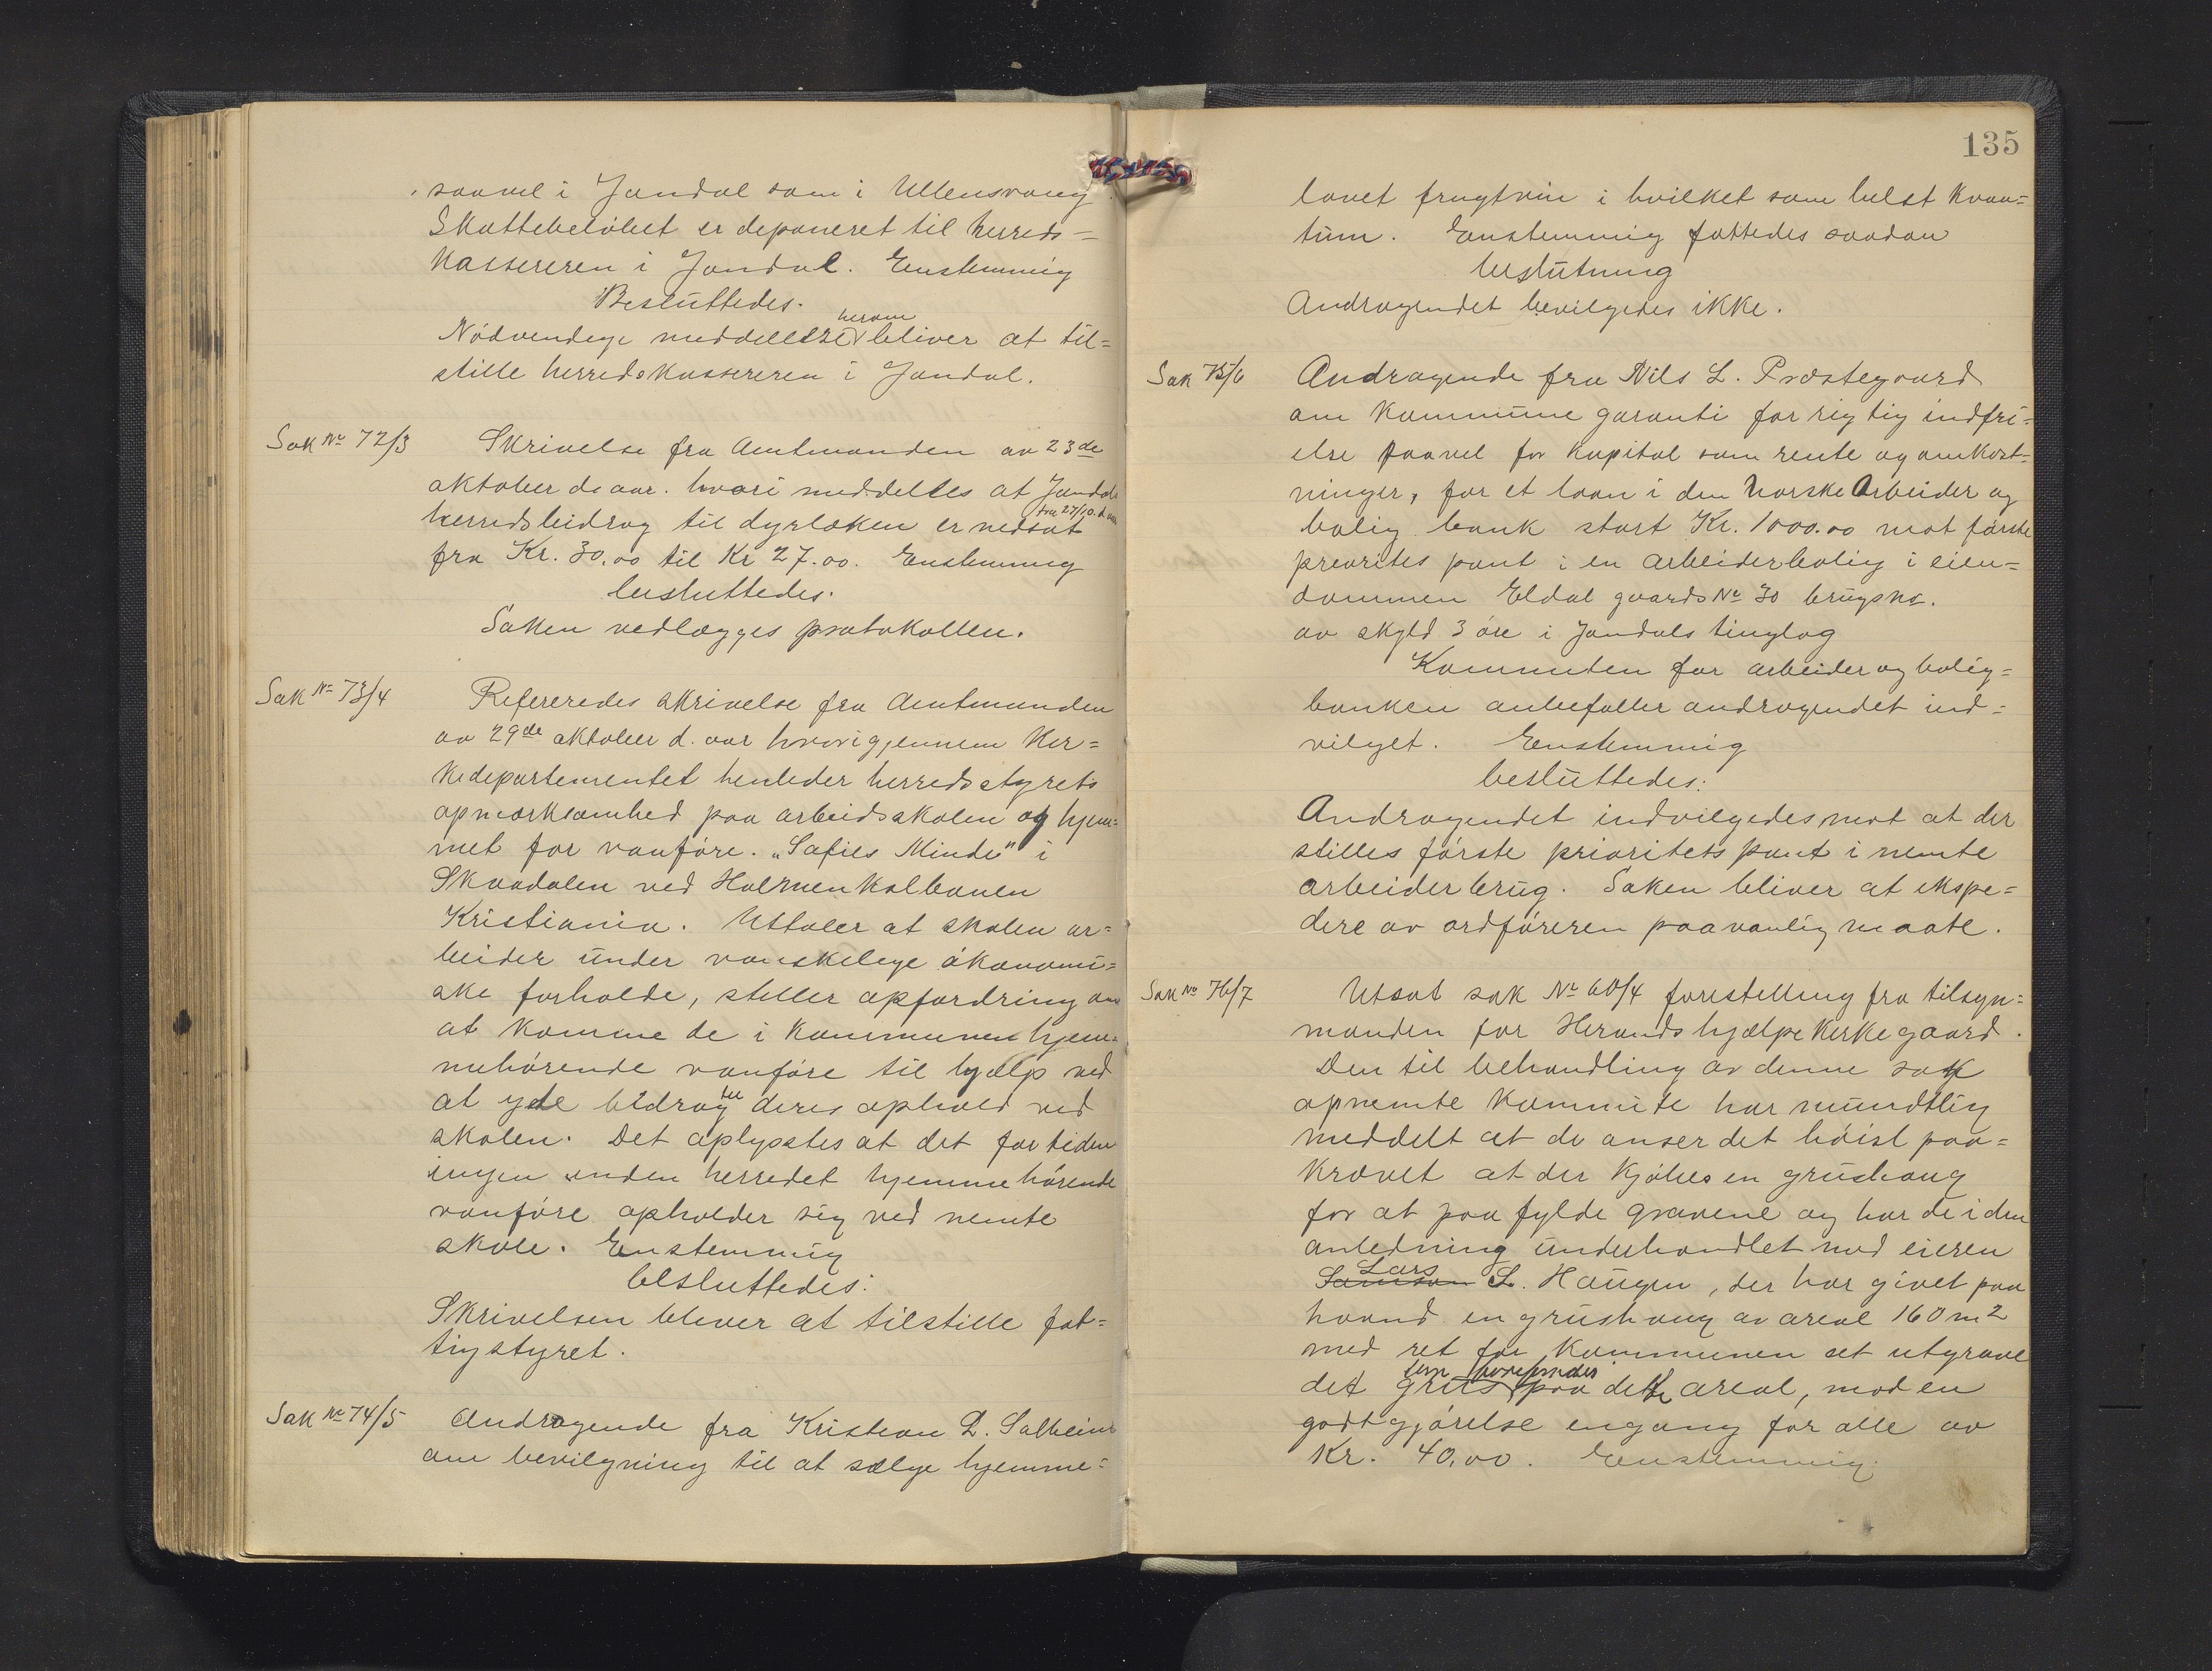 saavel i Jondal som i Ullensvang
Skattebeløbet er deponeret til herreds=
kassereren i Jondal. Enstemmig
Besluttedes.
Nödvendige meddelelse herom bliver at til=
stille herredskassereren i Jondal.
Sak No 72/3
Skrivelse fra Amtmanden av 23de
oktober d. aar. hvori meddelles at Jondals
herredsbidrag til dyrlæken fra 27/10. d. aar er nedsat
fra Kr. 30.00 til Kr 27.00. Enstemmig
besluttedes.
Saken vedlægges protokollen.
Sak No 73/4
Refereredes skrivelse fra Amtmanden
av 29de oktober d. aar hvorigjennem Kir=
kedepartementet henleder herredsstyrets
opmærksomhed paa arbeidsskolen og hjem=
met for vanføre. "Sofies Minde" i
Skaadalen ved Holmenkolbanen
Kristiania. Uttaler at skolen ar=
beider under vanskelige økonomi=
ske forholde, stiller opfordring om
at komme de i kommunen hjem=
mehørende vanføre til hjælp ved
at yde bidrag til deres ophold ved
skolen. Det oplystes at det for tiden
ingen inden herredet hjemmehørende
vanføre opholder sig ved nemte
skole. Enstemmig
besluttedes:
Skrivelsen bliver at tilstille fat=
tigstyret.
Sak No 74/5
Andragende fra Kristian L. Solheim
om bevilgning til at sælge hjemme=
135
lavet frugtvin i hvilket som helst kvan=
tum. Enstemmig fattedes saadan
beslutning
Andragendet bevilgedes ikke.
Sak 75/6
Andragende fra Nils L. Præstegaard
om kommune garanti for rigtig indfri=
else saavel for kapital som rente og omkost=
ninger, for et laan i den norske Arbeider og
bolig bank stort Kr. 1000.00 mot første
preorites pant i en arbeiderbolig i eien=
dommen Eldal gaards No 30 brugsno.
av skyld 3 øre i Jondals tinglag
Kommiten for arbeider og bolig=
banken anbefaller andragendet ind=
vilget. Enstemmig
besluttedes:
Andragendet indvilgedes mot at der
stilles første prioritets pant i nemte
arbeiderbrug. Saken bliver at ekspe=
dere av ordføreren paa vanlig maate.
Sak No 76/7
Utsat sak No 60/4 forestelling fra tilsyn=
manden for Herands hjælpekirkegaard.
Den til behandling av denne sak
opnemte kommite har mundtlig
meddelt at de anser det høist paa=
krævet at der kjøbes en grushaug
for at paa fylde gravene og har de i den
anledning underhandlet med eieren
Samson Lars L. Haugen, der har givet paa
haand en grushaug av areal 160 m2
med ret for kommunen at utgrave
det grus som forefindes paa dette areal, mod en
godtgjørelse engang for alle av
Kr. 40,00. Enstemmig.